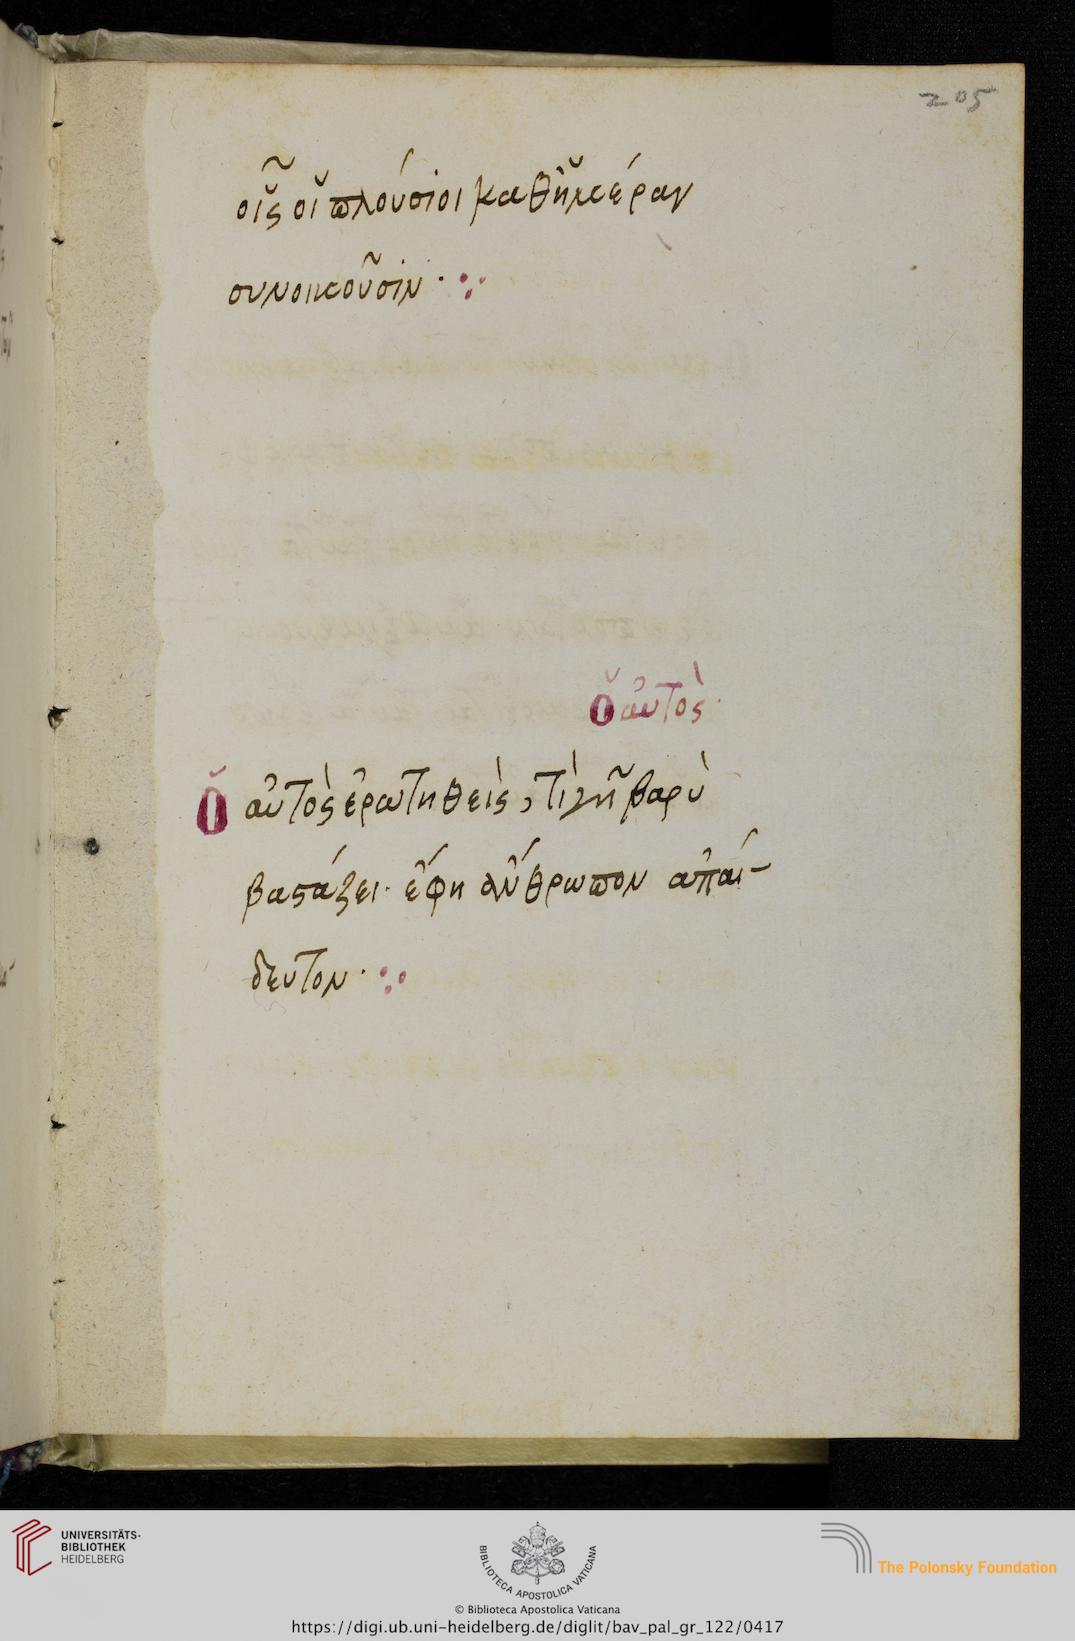 205
οἷς οἱ πλούσιοι καθημέραν
συνοικοῦσιν·
ὁ αὐτὸς·
ὁ αὐτὸς ἐρωτηθεὶς, τί γῆ βαρὺ
βαστάζει· ἔφη ἄνθρωπον ἀπαί-
δευτον·
UNIVERSITÄTS-
BIBLIOTHEK
HEIDELBERG
BIBLIOTECA APOSTOLICA VATICANA
The Polonsky Foundation
© Biblioteca Apostolica Vaticana
https://digi.ub.uni-heidelberg.de/diglit/bav_pal_gr_122/0417